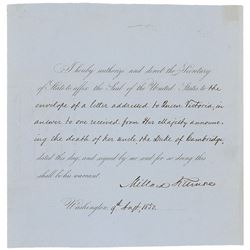 I hereby authorize and direct the Secretary
of State to affix the Seal of the United States to the
envelope of a letter addressed to Queen Victoria, in
answer to one received from Her Majesty announc-
ing the death of her uncle, the Duke of Cambridge,
dated this day, and signed by me and for so doing this
shall be his warrant.
Millard Fillmore
Washington, 9th Augt. 1850.